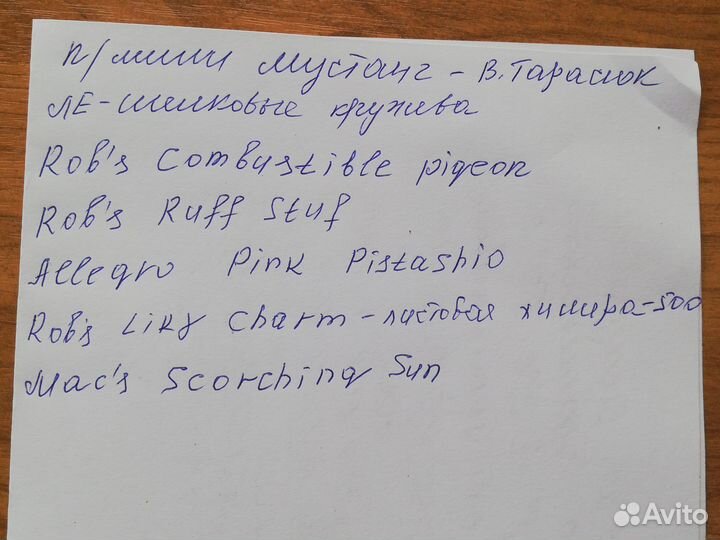 п/мини Мустанг - В. Тарасюк
ЛЕ-шелковые кружива
Rob's Combustible pigeon
Rob's Ruff Stuf
Allegro Pink Pistashio
Rob's Liky Charm - листовая химира-500
Mac's Scorching Sun
Avito